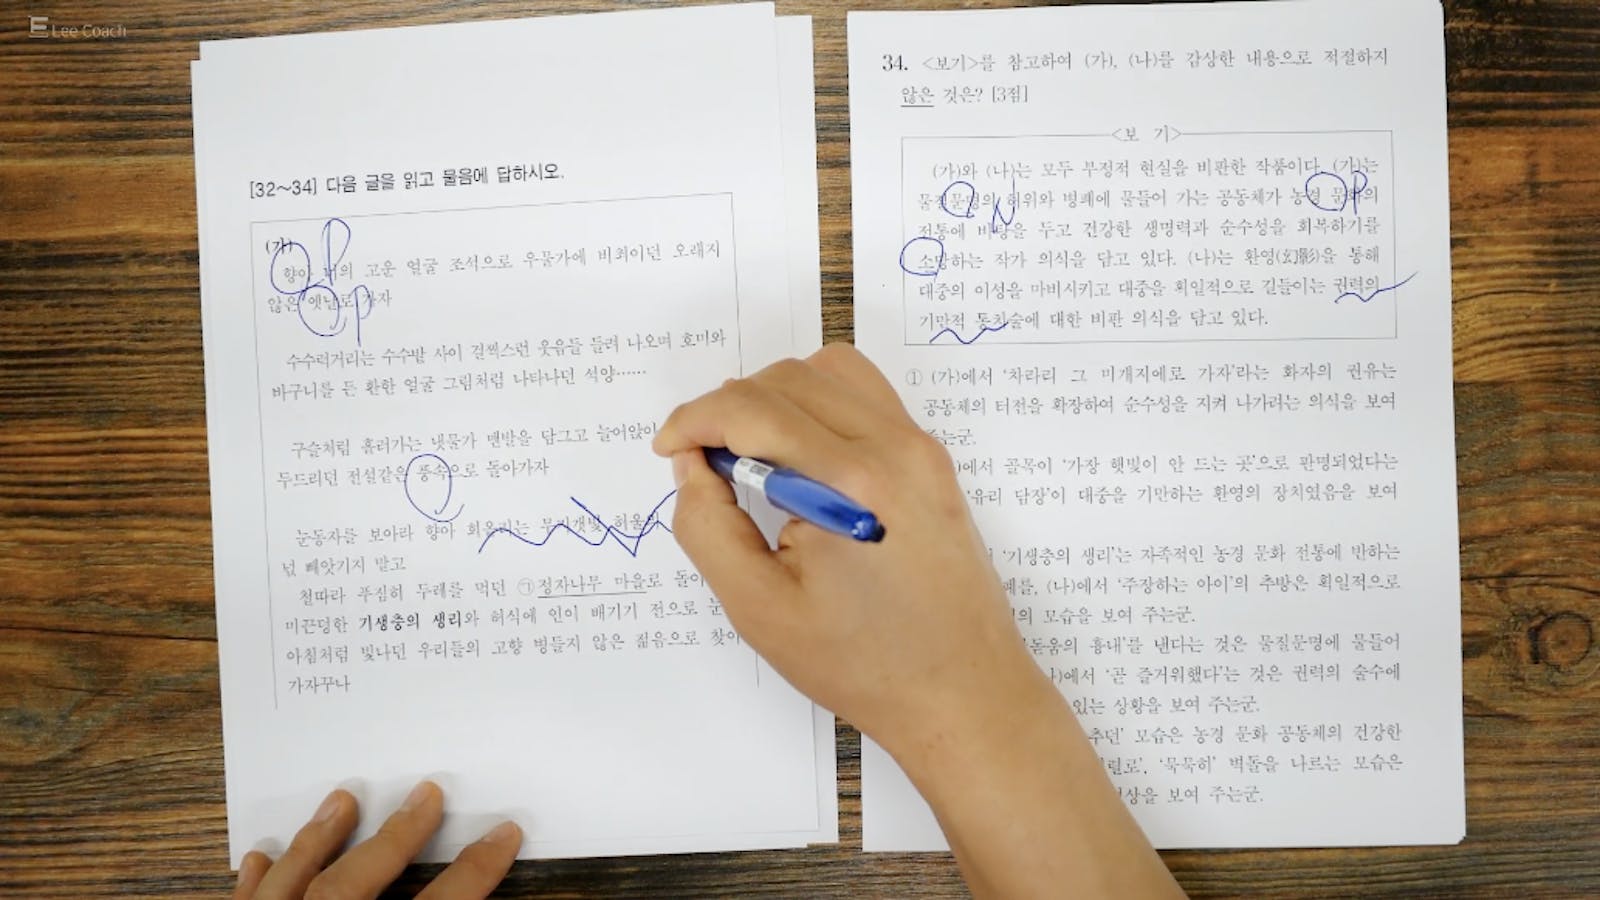 Lee Coach
[32~34] 다음 글을 읽고 물음에 답하시오.
(가)
향아 너의 고운 얼굴 조석으로 우물가에 비최이던 오래지
않은 옛날로 가자
수수럭거리는 수수밭 사이 걸찍스런 웃음들 들려 나오며 호미와
바구니를 든 환한 얼굴 그림처럼 나타나던 석양……
구슬처럼 흘러가는 냇물가 맨발을 담그고 늘어앉아
두드리던 전설같은 풍속으로 돌아가자
눈동자를 보아라 향아 회올리는 무지갯빛 허울의
넋 빼앗기지 말고
철따라 푸짐히 두레를 먹던 ㉠정자나무 마을로 돌아
미끈덩한 기생충의 생리와 허식에 인이 배기기 전으로 눈
아침처럼 빛나던 우리들의 고향 병들지 않은 젊음으로 찾아
가자꾸나
34. <보기>를 참고하여 (가), (나)를 감상한 내용으로 적절하지
않은 것은? [3점]
<보 기>
(가)와 (나)는 모두 부정적 현실을 비판한 작품이다. (가)는
물질문명의 허위와 병폐에 물들어 가는 공동체가 농경 문화의
전통에 바탕을 두고 건강한 생명력과 순수성을 회복하기를
소망하는 작가 의식을 담고 있다. (나)는 환영(幻影)을 통해
대중의 이성을 마비시키고 대중을 획일적으로 길들이는 권력의
기만적 통치술에 대한 비판 의식을 담고 있다.
① (가)에서 '차라리 그 미개지에로 가자'라는 화자의 권유는
공동체의 터전을 확장하여 순수성을 지켜 나가려는 의식을 보여
주는군.
에서 골목이 '가장 햇빛이 안 드는 곳'으로 판명되었다는
'유리 담장'이 대중을 기만하는 환영의 장치였음을 보여
'기생충의 생리'는 자족적인 농경 문화 전통에 반하는
폐를, (나)에서 '주장하는 아이'의 추방은 획일적으로
의 모습을 보여 주는군.
돋움의 흉내'를 낸다는 것은 물질문명에 물들어
에서 '곧 즐거워했다'는 것은 권력의 술수에
있는 상황을 보여 주는군.
추던' 모습은 농경 문화 공동체의 건강한
렬로', '묵묵히' 벽돌을 나르는 모습은
상을 보여 주는군.
P
P
N
P